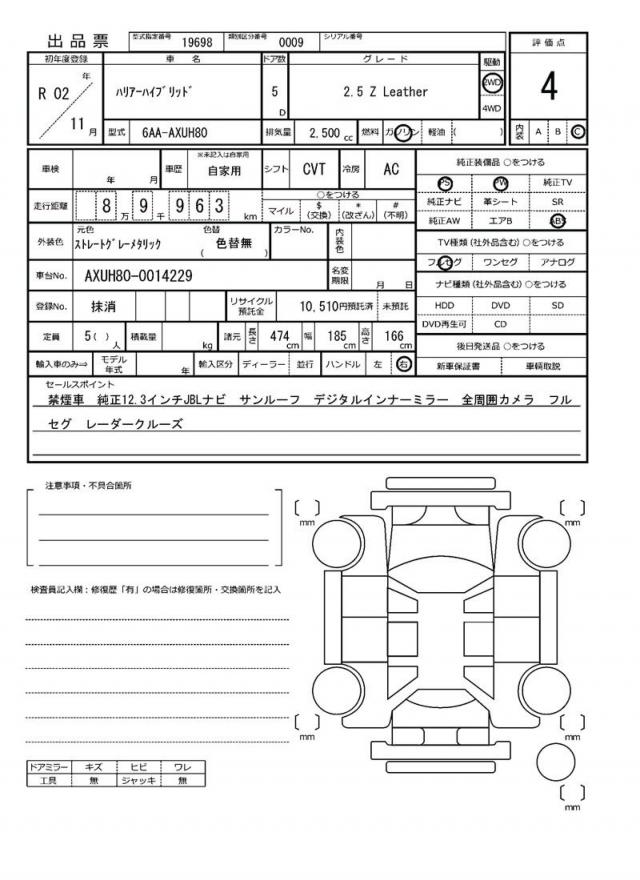 出品票 型式指定番号 19698 類別区分番号 0009 シリアル番号
初年度登録 車名 ドア数 グレード 駆動 評価点
R 02 年 11 月 ﾊﾘｱｰﾊｲﾌﾞﾘｯﾄﾞ 5 D 2.5 Z Leather 2WD 4WD 4
型式 6AA-AXUH80 排気量 2,500 cc 燃料 ガソリン 軽油 ( ) 内装 A B C
車検 年 月 車歴 ※未記入は自家用 自家用 シフト CVT 冷房 AC
純正装備品 ○をつける
PS PW 純正TV
純正ナビ 革シート SR
純正AW エアB ABS
走行距離 8 万 9 千 9 6 3 km
○をつける
マイル $ (交換) * (改ざん) # (不明)
外装色 元色 ｽﾄﾚｰﾄｸﾞﾚｰﾒﾀﾘｯｸ 色替 ( 色替無 ) カラーNo. 内装色
TV種類 (社外品含む) ○をつける
フルセグ ワンセグ アナログ
車台No. AXUH80-0014229 名変期限 月 日
ナビ種類 (社外品含む) ○をつける
HDD DVD SD
DVD再生可 CD
登録No. 抹消 リサイクル預託金 10,510円預託済 未預託
定員 5( ) 人 積載量 kg 諸元 長さ 474 cm 幅 185 cm 高さ 166 cm
後日発送品 ○をつける
新車保証書 車輌取説
輸入車のみ⇒ モデル年式 年 輸入区分 ディーラー 並行 ハンドル 左 右
セールスポイント
禁煙車 純正12.3インチJBLナビ サンルーフ デジタルインナーミラー 全周囲カメラ フル
セグ レーダークルーズ
注意事項・不具合箇所
mm mm
検査員記入欄：修復歴「有」の場合は修復箇所・交換箇所を記入
mm mm
ドアミラー キズ ヒビ ワレ
工具 無 ジャッキ 無
mm